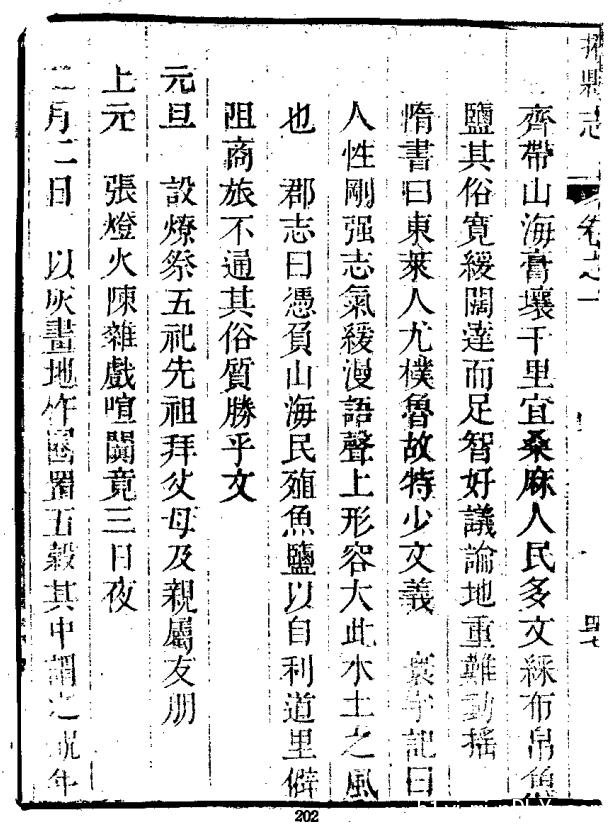 掖縣志 卷之一
齊帶山海膏壤千里宜桑麻人民多文綵布帛魚
鹽其俗寬緩闊達而足智好議論地重難動搖
隋書曰東萊人尤樸魯故特少文義 寰宇記曰
人性剛强志氣緩漫語聲上形容大此水土之風
也 郡志曰憑負山海民殖魚鹽以自利道里僻
阻商旅不通其俗質勝乎文
元旦 設燎祭五祀先祖拜父母及親屬友朋
上元 張燈火陳雜戲喧闐竟三日夜
二月二日 以灰畫地作囷置五穀其中謂之年
202